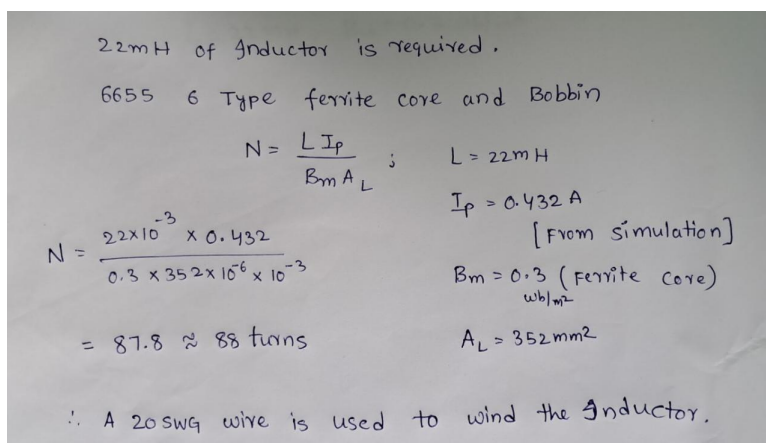 22mH of Inductor is required.
6655 6 Type ferrite core and Bobbin
N = L Ip / Bm A_L ; L = 22mH
Ip = 0.432 A
[From simulation]
N = 22x10^-3 x 0.432 / 0.3 x 352x10^-6 x 10^-3
Bm = 0.3 (Ferrite core)
wb/m2
= 87.8 ≈ 88 turns
A_L = 352mm2
∴ A 20 SWG wire is used to wind the Inductor.